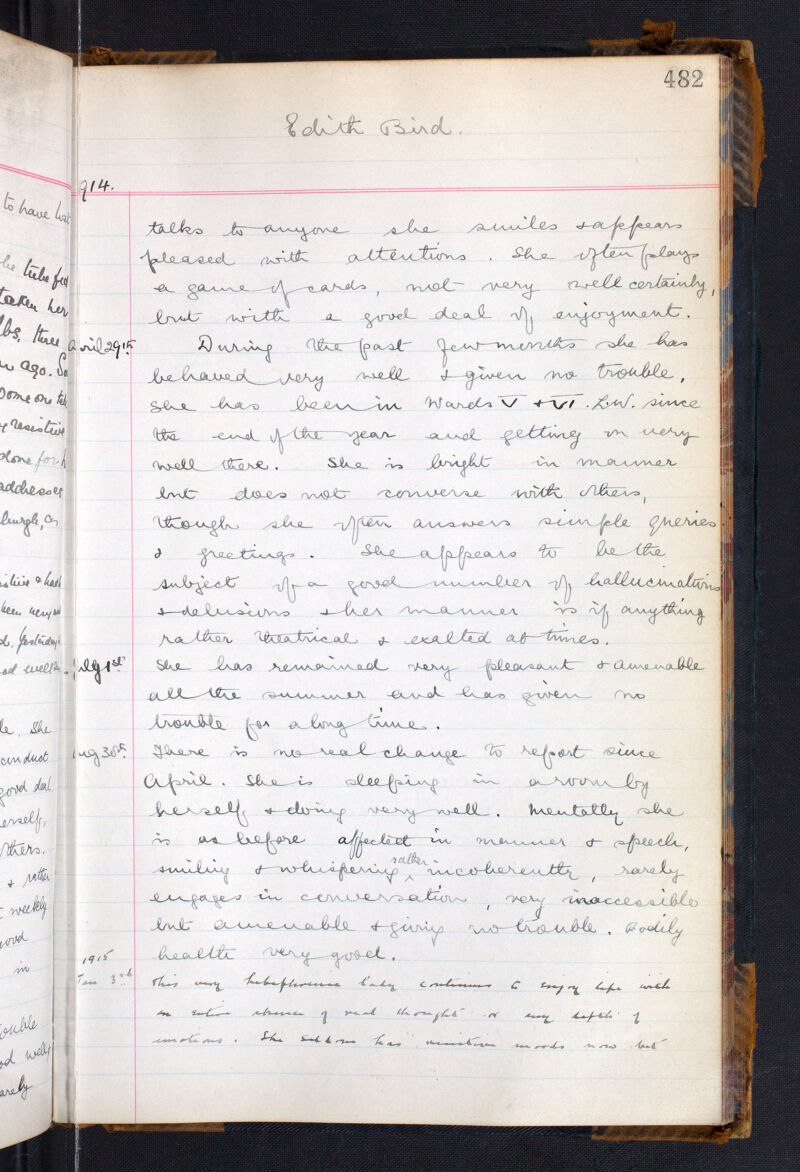 482
Edith Bird.
914.
talks to anyone she smiles & appears
pleased with attentions. She often plays
a game of cards, not very well certainly,
but with a good deal of enjoyment.
April 29th During the past few months she has
behaved very well & given no trouble,
She has been in Wards V & VI. L.W. since
the end of the year and getting on very
well there. She is bright in manner
but does not converse with others,
though she often answers simple queries
& greetings. She appears to be the
subject of a good number of hallucinations
& delusions & her manner is if anything
rather theatrical & exalted at times.
July 1st She has remained very pleasant & amenable
all the summer and has given no
trouble for a long time.
Aug 30th There is no real change to report since
April. She is sleeping in a room by
herself & doing very well. Mentally she
is as before affected in manner & speech,
smiling & whispering rather incoherently, rarely
engages in conversation, very inaccessible
but amenable & giving no trouble. Bodily
health very good.
1915
Jan 3rd This very hebephrenic lady continues to enjoy life with
an entire absence of real thought or any depth of
emotions. She seldom has moods now but
to have
the tube fed
taken her
lbs. three
ago. So
Some one
resistive
done for h
addresses
been very
d. Yesterday
le. She
conduct
good deal
herself,
others.
& rather
weekly
good
in
trouble
rarely